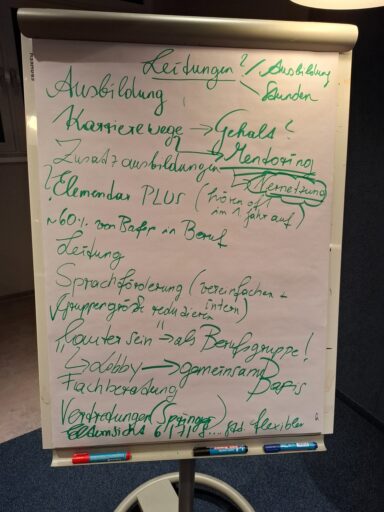 Leitungen? / Ausbildung
Stunden
Ausbildung
Karrierewege → Gehalt?
Zusatzausbildungen → Mentoring
→ Vernetzung
Elementar PLUS (hören oft
im 1. Jahr auf)
~60% von Bafep in Beruf
Leitung
Sprachförderung (vereinfachen +
intern)
Gruppengröße reduzieren
"Lauter sein" → als Berufsgruppe!
↳ Lobby → gemeinsam
Bafeps
Fachberatung
Vertretungen (Springer
6, 7, 10, ... Std. flexibler